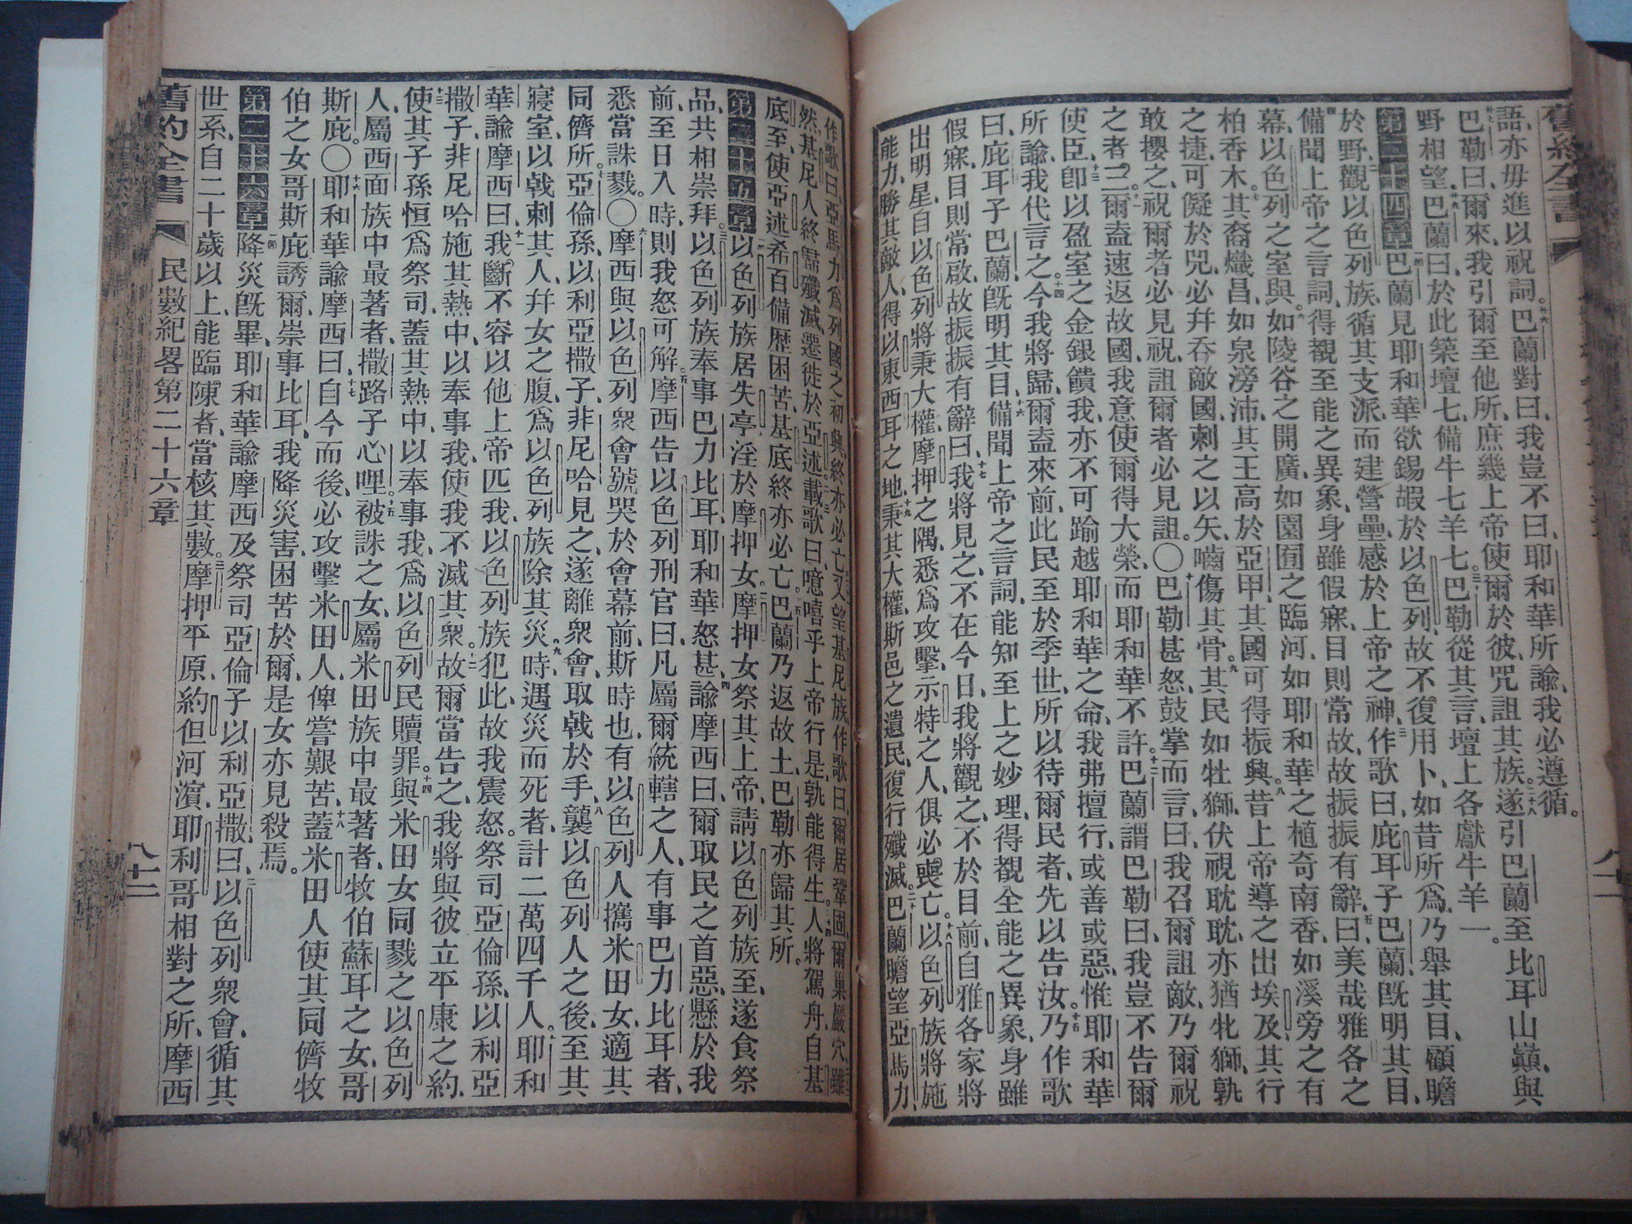 舊約全書
語、亦毋進以祝詞。巴蘭對曰、我豈不曰、耶和華所諭、我必遵循。
巴勒曰、爾來、我引爾至他所、庶幾上帝使爾於彼咒詛其族、遂引巴蘭至比耳山巔、與
野相望、巴蘭曰、於此築壇七、備牛七羊七、巴勒從其言、壇上各獻牛羊一。
第二十四章 巴蘭見耶和華欲錫嘏於以色列、故不復用卜、如昔所爲、乃舉其目、顧瞻
於野、觀以色列族、循其支派、而建營壘、感於上帝之神、作歌曰、庇耳子巴蘭旣明其目、
備聞上帝之言詞、得覩至能之異象、身雖假寐、目則常故、故振振有辭曰、美哉雅各之
幕、以色列之室與。如陵谷之開廣、如園囿之臨河、如耶和華之植奇南香、如溪旁之有
柏香木、其裔熾昌、如泉滂沛、其王高於亞甲、其國可得振興、昔上帝導之出埃及、其行
之捷、可儗於兕、必幷吞敵國、刺之以矢、嚙傷其骨、其民如牡獅、伏視耽耽、亦猶牝獅、孰
敢攖之、祝爾者必見祝、詛爾者必見詛。〇巴勒甚怒、鼓掌而言曰、我召爾詛敵、乃爾祝
之者三、爾盍速返故國、我意使爾得大榮、而耶和華不許、巴蘭謂巴勒曰、我豈不告爾
使臣、卽以盈室之金銀饋我、亦不可踰越耶和華之命、我弗擅行、或善或惡、惟耶和華
所諭、我代言之、今我將歸、爾盍來前、此民至於季世、所以待爾民者、先以告汝、乃作歌
曰、庇耳子巴蘭旣明其目、備聞上帝之言詞、能知至上之妙理、得覩全能之異象、身雖
假寐、目則常啟、故振振有辭曰、我將見之、不在今日、我將觀之、不於目前、自雅各家將
出明星、自以色列將秉大權、摩押之隅、悉爲攻擊、示特之人、俱必喪亡、以色列族將施
能力、勝其敵人、得以東西耳之地、秉其大權、斯邑之遺民、復行殲滅、巴蘭瞻望亞馬力、
作歌曰、亞馬力爲列國之初興、終亦必亡、又望基尼族作歌曰、爾居鞏固、爾巢巖穴、雖
然、基尼人終歸殲滅、遷徙於亞述、載歌曰、噫嘻乎、上帝行是、孰能得生、人將駕舟、自基
底至、使亞述希百備歷困苦、基底終亦必亡、巴蘭乃返故土、巴勒亦歸其所。
第二十五章 以色列族居失亭、淫於摩押女、摩押女祭其上帝、請以色列族至、遂食祭
品、共相崇拜、以色列族奉事巴力比耳、耶和華怒甚、諭摩西曰、爾取民之首惡、懸於我
前、至日入時、則我怒可解、摩西告以色列刑官曰、凡屬爾統轄之人、有事巴力比耳者、
悉當誅戮。〇摩西與以色列衆會號哭於會幕前、斯時也、有以色列人攜米田女、適其
同儕所、亞倫孫、以利亞撒子、非尼哈見之、遂離衆會、取戟於手、襲以色列人之後、至其
寢室、以戟刺其人、幷女之腹、爲以色列族除其災、時遇災而死者、計二萬四千人、耶和
華諭摩西曰、我斷不容以他上帝匹我、以色列族犯此、故我震怒。祭司亞倫孫、以利亞
撒子、非尼哈施其熱中、以奉事我、使我不滅其衆、故爾當告之、我將與彼立平康之約、
使其子孫恒爲祭司、蓋其熱中、以奉事我、爲以色列民贖罪、與米田女同戮之以色列
人、屬西面族中最著者、撒路子心哩、被誅之女、屬米田族中最著者、牧伯蘇耳之女、哥
斯庇。〇耶和華諭摩西曰、自今而後、必攻擊米田人、俾嘗艱苦、蓋米田人使其同儕牧
伯之女哥斯庇誘爾、崇事比耳、我降災害、困苦於爾、是女亦見殺焉。
第二十六章 降災旣畢、耶和華諭摩西及祭司亞倫子以利亞撒曰、以色列衆會、循其
世系、自二十歲以上、能臨陳者、當核其數、摩押平原、約但河濱、耶利哥相對之所、摩西
舊約全書 民數紀畧第二十六章 八十二